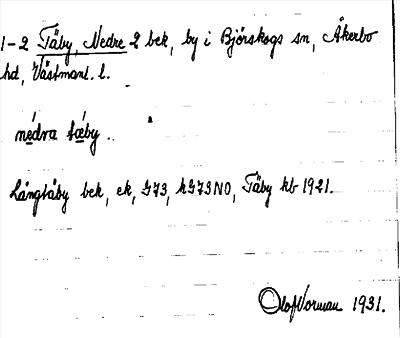 1-2 Täby, Nedre 2 bek, by i Björskogs sn, Åkerbo
hd, Västmanl. l.
nédra tǽby ..
Långtåby bek, ek, G73, kG73NO, Täby kb 1921.
Olof Norman 1931.